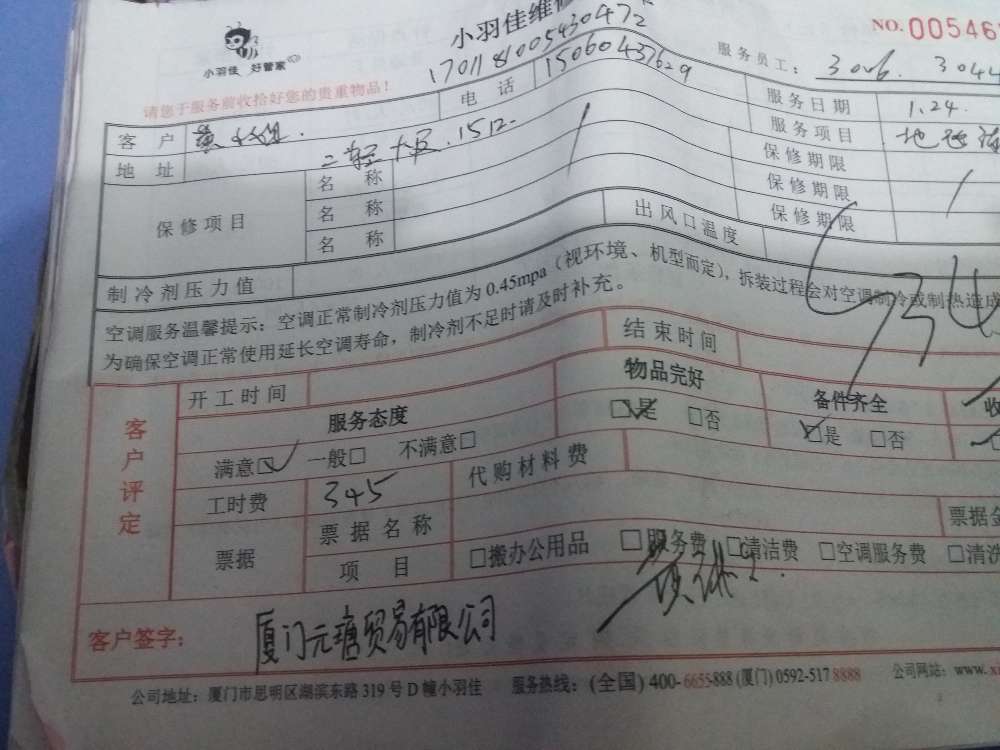 小羽佳 好管家
小羽佳维
NO. 00546
170118100543047２
服务员工：3006. 304
请您于服务前收拾好您的贵重物品！
客户
电话 15060437629
服务日期 1.24.
地址 二轻大厦.1512.
服务项目
保修项目
名称 保修期限
名称 保修期限
名称 保修期限
制冷剂压力值
出风口温度
空调服务温馨提示：空调正常制冷剂压力值为0.45mpa（视环境、机型而定），拆装过程会对空调制冷或制热造成
为确保空调正常使用延长空调寿命，制冷剂不足时请及时补充。
客户评定
开工时间
结束时间
服务态度
物品完好
备件齐全
收
满意□ 一般□ 不满意□
□是 □否
□是 □否
工时费 345
代购材料费
票据
票据名称
票据全
项目
□搬办公用品 □服务费 □清洁费 □空调服务费 □清洗
客户签字：厦门元瑭贸易有限公司
公司地址：厦门市思明区湖滨东路319号D幢小羽佳 服务热线：(全国) 400-6655-888 (厦门) 0592-517 8888 公司网站：www.